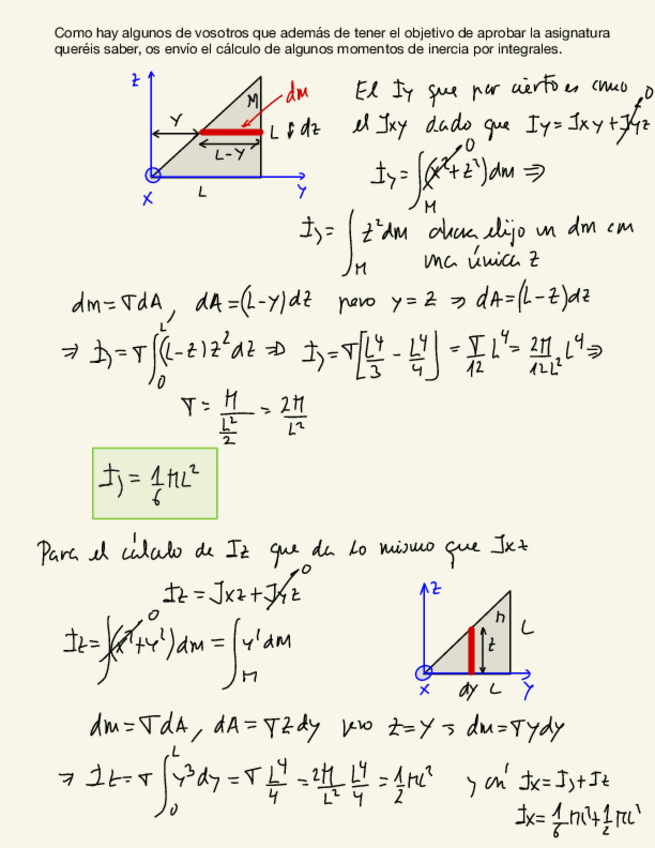 Como hay algunos de vosotros que además de tener el objetivo de aprobar la asignatura
queréis saber, os envío el cálculo de algunos momentos de inercia por integrales.
z
M
dm
Y
L
dz
L-Y
X
L
Y
El Iy que por cierto es como
el Jxy dado que Iy = Jxy + Jyz 0
Iy = ∫M (x² + z²) dm ⇒ 0
Iy = ∫M z² dm ahora elijo un dm con
una única z
dm = σdA, dA = (L-y)dz pero y = z ⇒ dA = (L-z)dz
⇒ Iy = σ ∫0L (L-z) z² dz ⇒ Iy = σ[L⁴/3 - L⁴/4] = σ/12 L⁴ = 2M/12L² L⁴ ⇒
σ = M/(L²/2) = 2M/L²
Iy = 1/6 ML²
Para el cálculo de Iz que da lo mismo que Jxz
Iz = Jxz + Jyz 0
Iz = ∫(x² + y²) dm = ∫M y² dM 0
z
M
L
z
X
dy
L
Y
dm = σdA, dA = σz dy pero z = y ⇒ dm = σy dy
⇒ Iz = σ ∫0L y³ dy = σ L⁴/4 = 2M/L² L⁴/4 = 1/2 ML² y así Ix = Iy + Iz
Ix = 1/6 ML² + 1/2 ML²